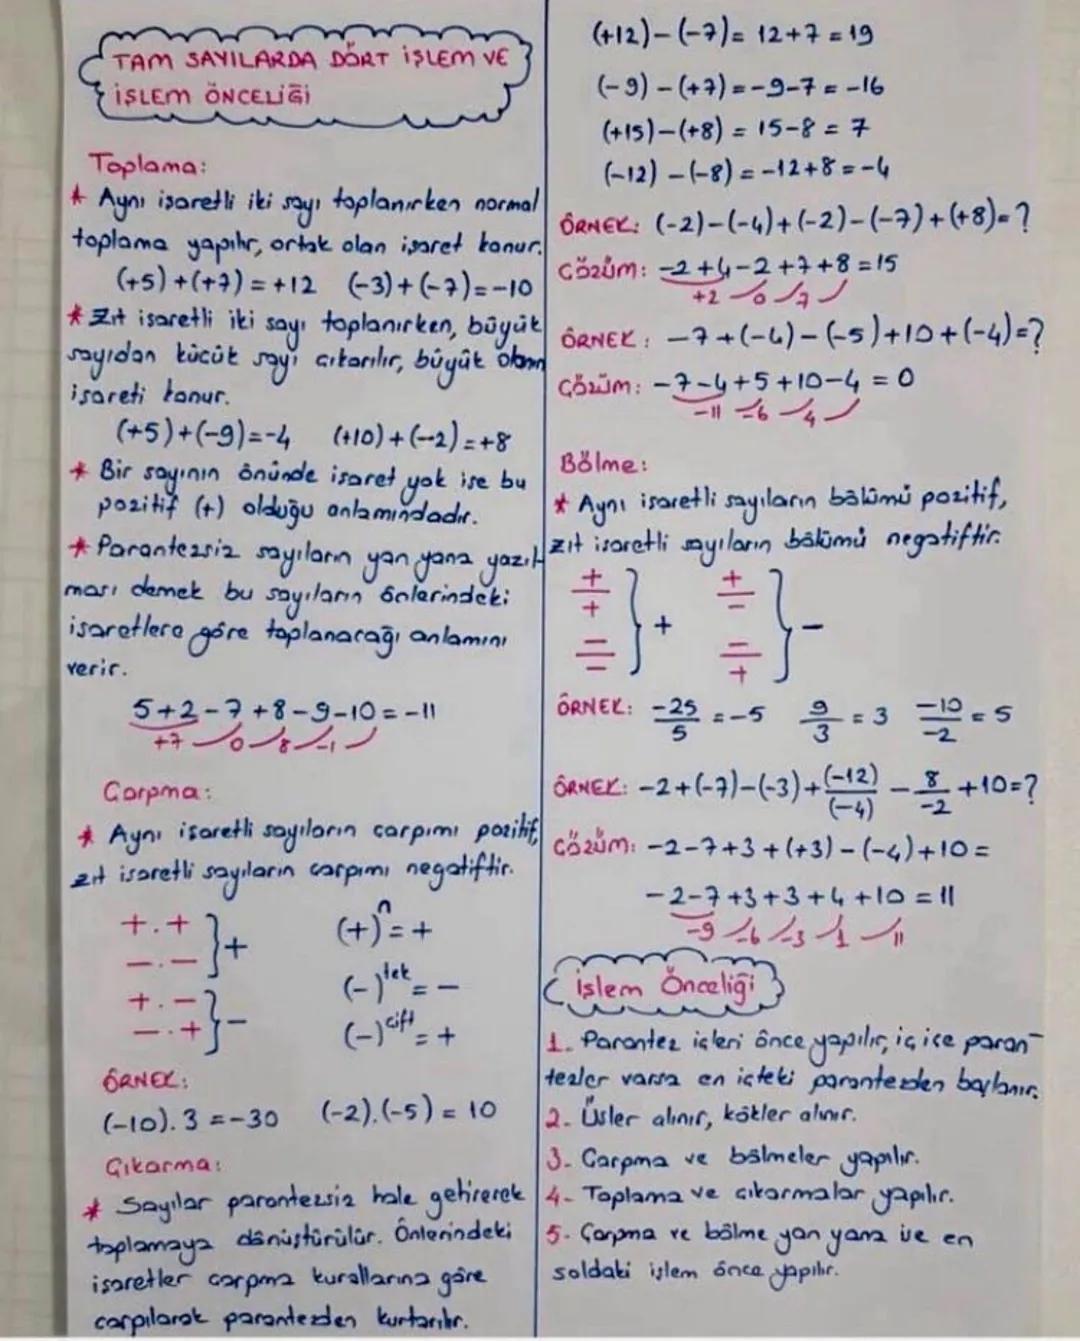 TAM SAYILARDA DÖRT İŞLEM VE
İŞLEM ÖNCELİĞİ
Toplama:
* Aynı işaretli iki sayı toplanırken normal
toplama yapılır, ortak olan işaret konur.
(+5)+(+7)=+12 (-3)+(-7)=-10
* Zıt işaretli iki sayı toplanırken, büyük
sayıdan küçük sayı çıkarılır, büyük olanın
işareti konur.
(+5)+(-9)=-4 (+10)+(-2)=+8
* Bir sayının önünde işaret yok ise bu
pozitif (+) olduğu anlamındadır.
* Parantezsiz sayıların yan yana yazıl
ması demek bu sayıların önlerindeki
işaretlere göre toplanacağı anlamını
verir.
5+2-7+8-9-10=-11
+7 0 8 -1
Çarpma:
* Aynı işaretli sayıların çarpımı pozitif,
zıt işaretli sayıların çarpımı negatiftir.
+.+
-.-
} +
+.-
-.+
} -
(+)ⁿ=+
(-)ᵗᵉᵏ=-
(-)çift=+
ÖRNEK:
(-10).3=-30 (-2).(-5)=10
Çıkarma:
* Sayılar parantezsiz hale getirerek
toplamaya dönüştürülür. Önlerindeki
işaretler çarpma kurallarına göre
çarpılarak parantezden kurtarılır.
(+12)-(-7)=12+7=19
(-9)-(+7)=-9-7=-16
(+15)-(+8)=15-8=7
(-12)-(-8)=-12+8=-4
ÖRNEK: (-2)-(-4)+(-2)-(-7)+(+8)=?
ÇÖZÜM: -2+4-2+7+8=15
+2 0 7
ÖRNEK: -7+(-4)-(-5)+10+(-4)=?
ÇÖZÜM: -7-4+5+10-4=0
-11 -6 4
Bölme:
* Aynı işaretli sayıların bölümü pozitif,
zıt işaretli sayıların bölümü negatiftir.
+/+ -/- } + +/- -/+ } -
ÖRNEK: -25/5=-5 9/3=3 -10/-2=5
ÖRNEK: -2+(-7)-(-3)+(-12)/(-4)-8/-2+10=?
ÇÖZÜM: -2-7+3+(+3)-(-4)+10=
-2-7+3+3+4+10=11
-9 -6 -3 1 11
İşlem Önceliği
1. Parantez içleri önce yapılır, iç içe paran-
tezler varsa en içteki parantezden başlanır.
2. Üsler alınır, kökler alınır.
3. Çarpma ve bölmeler yapılır.
4- Toplama ve çıkarmalar yapılır.
5. Çarpma ve bölme yan yana ise en
soldaki işlem önce yapılır.